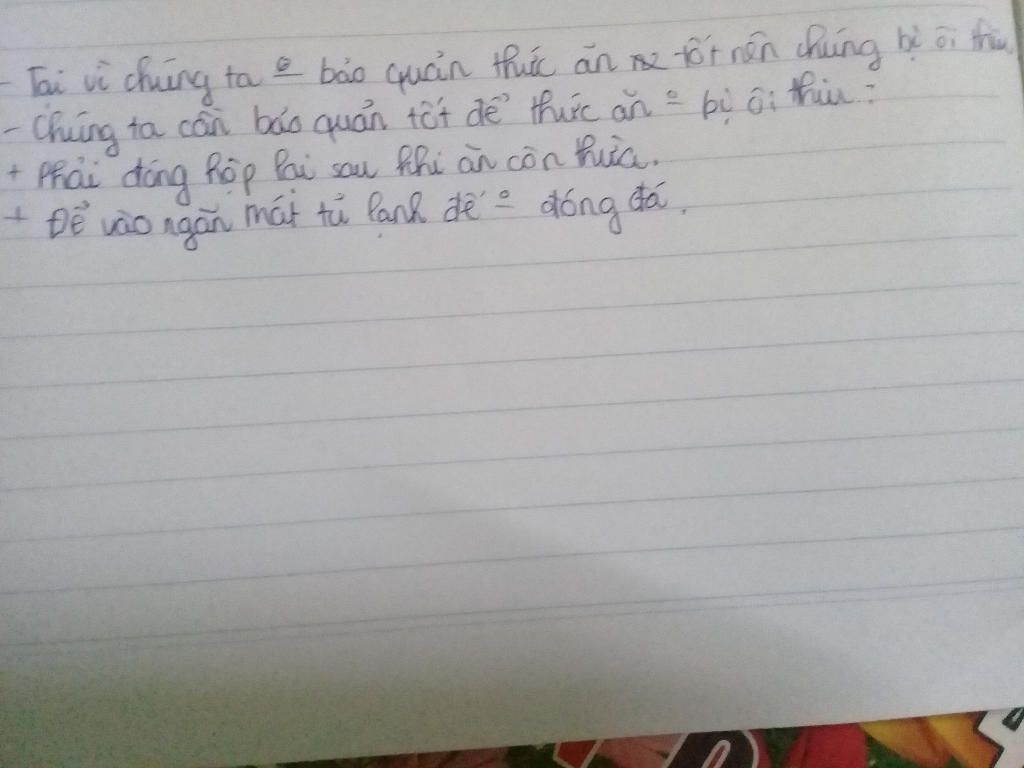 - Tại vì chúng ta o bảo quản thức ăn tốt nên chúng bị ôi thiu
- Chúng ta cần bảo quản tốt để thức ăn o bị ôi thiu:
+ Phải đóng hộp lại sau khi ăn còn thừa.
+ Để vào ngăn mát tủ lạnh để o đóng đá.